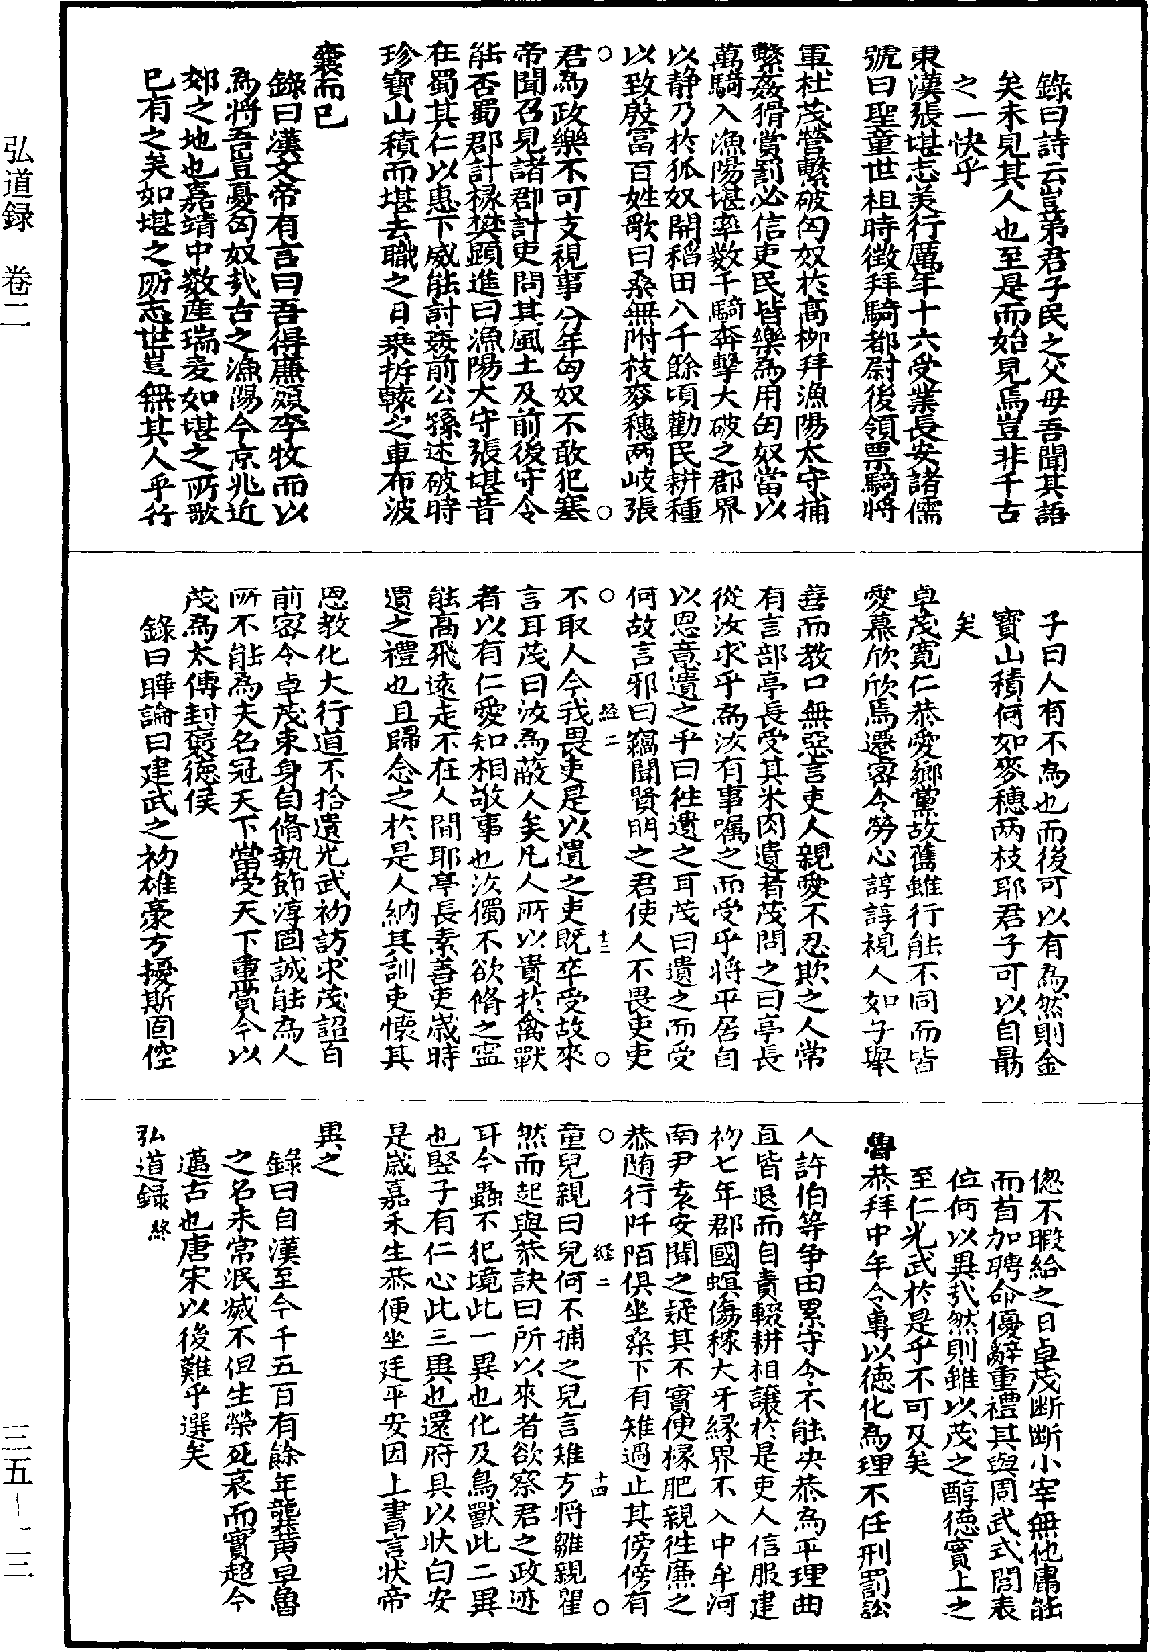 錄曰詩云豈弟君子民之父母吾聞其語
矣未見其人也至是而始見焉豈非千古
之一快乎
東漢張堪志美行厲年十六受業長安諸儒
號曰聖童世祖時徵拜騎都尉後領票騎將
軍杜茂營繫破匈奴於高柳拜漁陽太守捕
繫姦猾賞罰必信吏民皆樂為用匈奴當以
萬騎入漁陽堪率數千騎奔擊大破之郡界
以靜乃於狐奴開稻田八千餘頃勸民耕種
以致殷富百姓歌曰桑無附枝麥穗兩岐張
君為政樂不可支視事八年匈奴不敢犯塞
帝聞召見諸郡計吏問其風土及前後守令
能否蜀郡計椽樊顯進曰漁陽大守張堪昔
在蜀其仁以惠下威能討姦前公孫述破時
珍寶山積而堪去職之日乗折轅之車布波
囊而已
錄曰漢文帝有言曰吾得廉頗李牧而以
為將吾豈憂匈奴㦲古之漁陽今京兆近
郊之地也嘉靖中数產瑞麦如堪之所歌
已有之矣如堪之所志世豈無其人乎行
子曰人有不為也而後可以有為然則金
寶山積何如麥穗两枝耶君子可以自勗
矣
卓茂寬仁恭愛鄉黨故舊雖行能不同而皆
愛慕欣欣焉遷宻令勞心諄諄視人如子舉
善而教口無惡言吏人親愛不忍欺之人常
有言部亭長受其米肉遺者茂問之曰亭長
從汝求乎為汝有事囑之而受乎將平居自
以恩意遺之乎曰往遺之耳茂曰遺之而受
何故言邪曰竊聞賢明之君使人不畏吏吏
經二 十三
不取人今我畏吏是以遺之吏既卒受故來
言耳茂曰汝為蔽人矣凡人所以貴於禽獸
者以有仁愛知相敬事也汝獨不欲脩之寧
能高飛遠走不在人間耶亭長素善吏歲時
遺之禮也且歸念之於是人納其訓吏懷其
恩教化大行道不拾遺光武初訪求茂詔百
前宻令卓茂束身自脩執節淳固誠能為人
所不能為夫名冠天下當受天下重賞今以
茂為太傅封褒德侯
錄曰曄論曰建武之初雄豪方擾斯固倥
偬不暇給之日卓茂断断小宰無他庸能
而首加聘命優辭重禮其與周武式閭表
位何以異㦲然則雖以茂之醇德實上之
至仁光武於是乎不可及矣
魯恭拜中牟令專以德化為理不任刑罰訟
人許伯等争田累守令不能决恭為平理曲
直皆退而自責輟耕相讓於是吏人信服建
初七年郡國螟傷稼犬牙緣界不入中牟河
南尹袁安聞之疑其不實使椽肥親往廉之
恭随行阡陌俱坐桑下有雉過止其傍傍有
經二 十四
童兒親曰兒何不捕之兒言雉方將雛親瞿
然而起與恭訣曰所以來者欲察君之政迹
耳今蟲不犯境此一異也化及鳥獸此二異
也竪子有仁心此三異也還府具以狀白安
是歲嘉禾生恭便坐廷平安因上書言狀帝
異之
錄曰自漢至今千五百有餘年龔黃卓魯
之名未常泯滅不但生榮死哀而實超今
邁古也唐宋以後難乎選矣
弘道録 終
弘道録 卷二
三五-一三